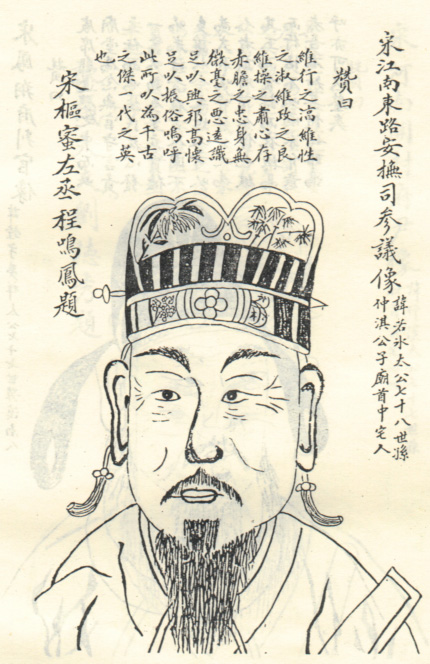 宋江南東路安撫司参議像
諱若水太公七十八世孫
仲淇公子廟首中宅人
贊曰
維行之維性
之淑維政之良
維操之肅心存
赤膽之忠身無
微毫之惡遠識
足以興邦高懷
足以振俗嗚呼
此所以為千古
之傑一代之英
也
宋樞蜜左丞程鳴鳳題